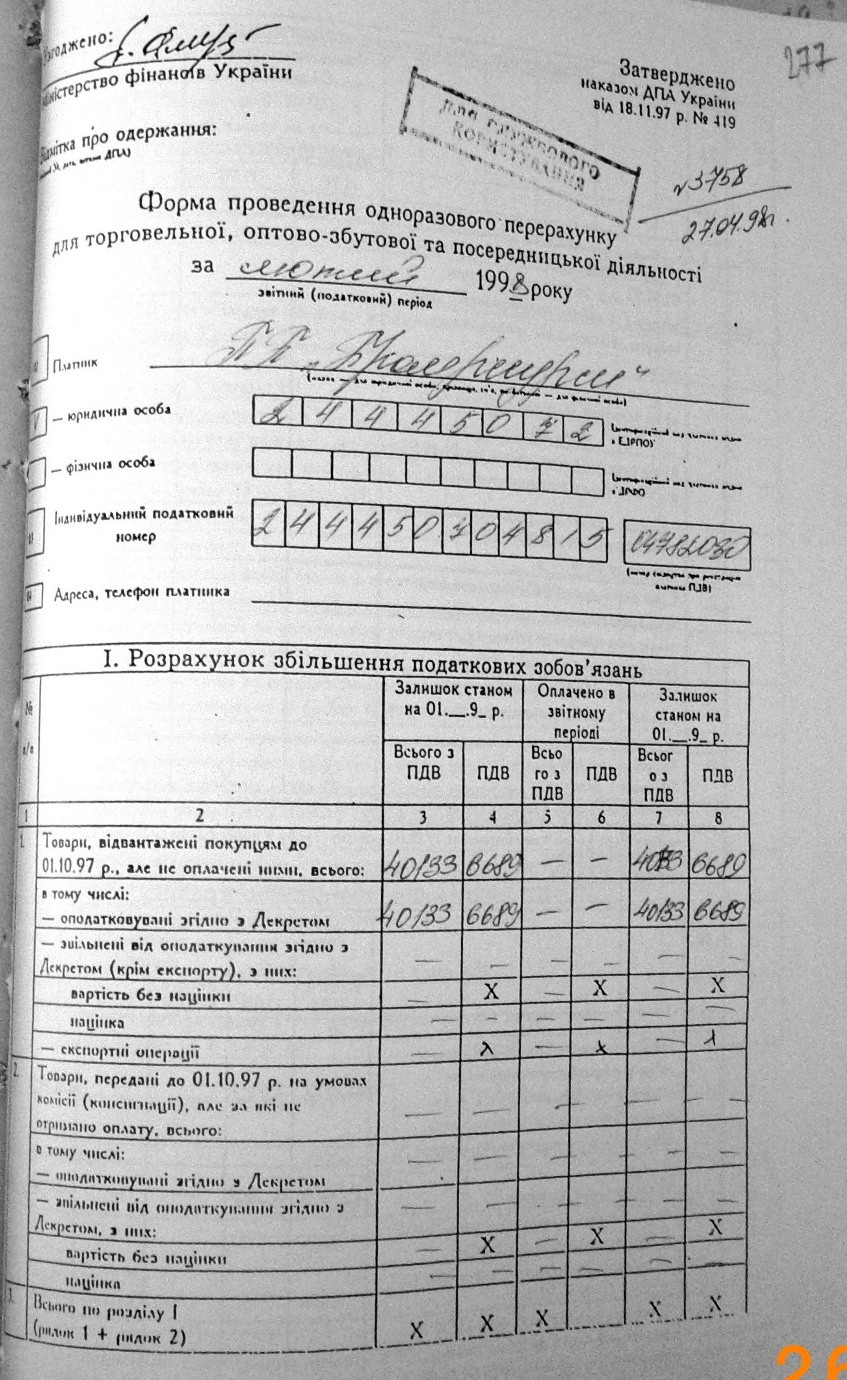 277
Узгоджено:
Міністерство фінансів України
Затверджено
наказом ДПА України
від 18.11.97 р. № 419
Відмітка про одержання:
ДПА)
ДЛЯ СЛУЖБОВОГО
КОРИСТУВАННЯ
№3758
27.04.98р.
Форма проведення одноразового перерахунку
для торговельної, оптово-збутової та посередницької діяльності
за лютий 1998 року
звітний (податковий) період
Платник ПП
(назва — для юридичної особи; прізвище, ім'я, по батькові — для фізичної особи)
V — юридична особа 2 4 4 4 5 0 7 2
в ЄДРПОУ
— фізична особа
Індивідуальний податковий
номер 2 4 4 4 5 0 7 0 4 8 1 5 04782030
04 Адреса, телефон платника
I. Розрахунок збільшення податкових зобов'язань
№
п/п
Залишок станом
на 01.__.9_ р.
Оплачено в
звітному
періоді
Залишок
станом на
01.__.9_ р.
Всього з
ПДВ ПДВ Всьо
го з
ПДВ ПДВ Всьог
о з
ПДВ ПДВ
1 2 3 4 5 6 7 8
1. Товари, відвантажені покупцям до
01.10.97 р., але не оплачені ними, всього: 40133 6689 — — 40133 6689
в тому числі:
— оподатковувані згідно з Декретом 40133 6689 — — 40133 6689
— звільнені від оподаткування згідно з
Декретом (крім експорту), з них: — — — — — —
вартість без націнки — X — X — X
націнка — — — — — —
— експортні операції — x — x — x
2. Товари, передані до 01.10.97 р. на умовах
комісії (консигнації), але за які не
отримано оплату, всього: — — — — — —
в тому числі:
— оподатковувані згідно з Декретом — — — — — —
— звільнені від оподаткування згідно з
Декретом, з них: — — — — — —
вартість без націнки — X — X — X
націнка — — — — — —
3. Всього по розділу I
(рядок 1 + рядок 2) X X X X X
26